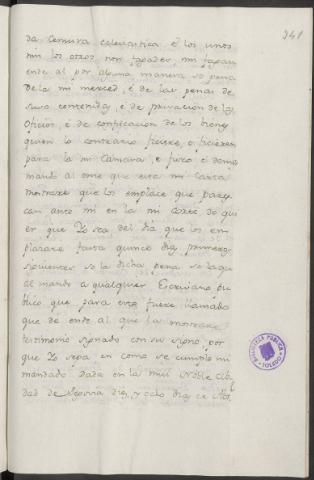 341
da Censura eclesiastica. E los unos
nin los otros non fagades, nin fagan
ende al por alguna manera so pena
de la mi merced, é de las penas de
suso contenidas, é de privacion de los
Oficios, é de confiscacion de los bienes
quien lo contrario ficiere, o ficieren
para la mi Camara, e juro é demas
mando al ome que esta mi carta
mostrare que los emplace que parez
can ante mi en la mi Corte do qui
er que Yo sea del dia que los em
plazare fasta quince dias primeros
siguientes so la dicha pena so la qu
al mando a qualquier Escrivano pu
blico que para esto fuere llamado
que dé ende al que la mostrare
testimonio signado con su signo por
que Yo sepa en como se cumple mi
mandado. Dada en la mui Noble cib
dad de Segovia diez y ocho dias de
BIBLIOTECA PUBLICA
TOLEDO